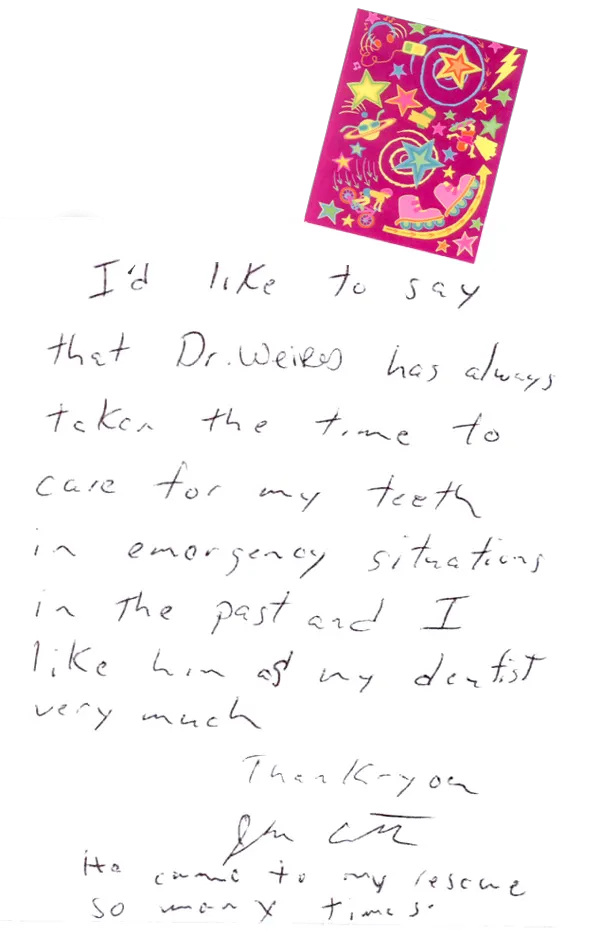 I'd like to say
that Dr. Weires has always
taken the time to
care for my teeth
in emergency situations
in The past and I
like him as my dentist
very much
Thank-you
He came to my rescue
so many times.